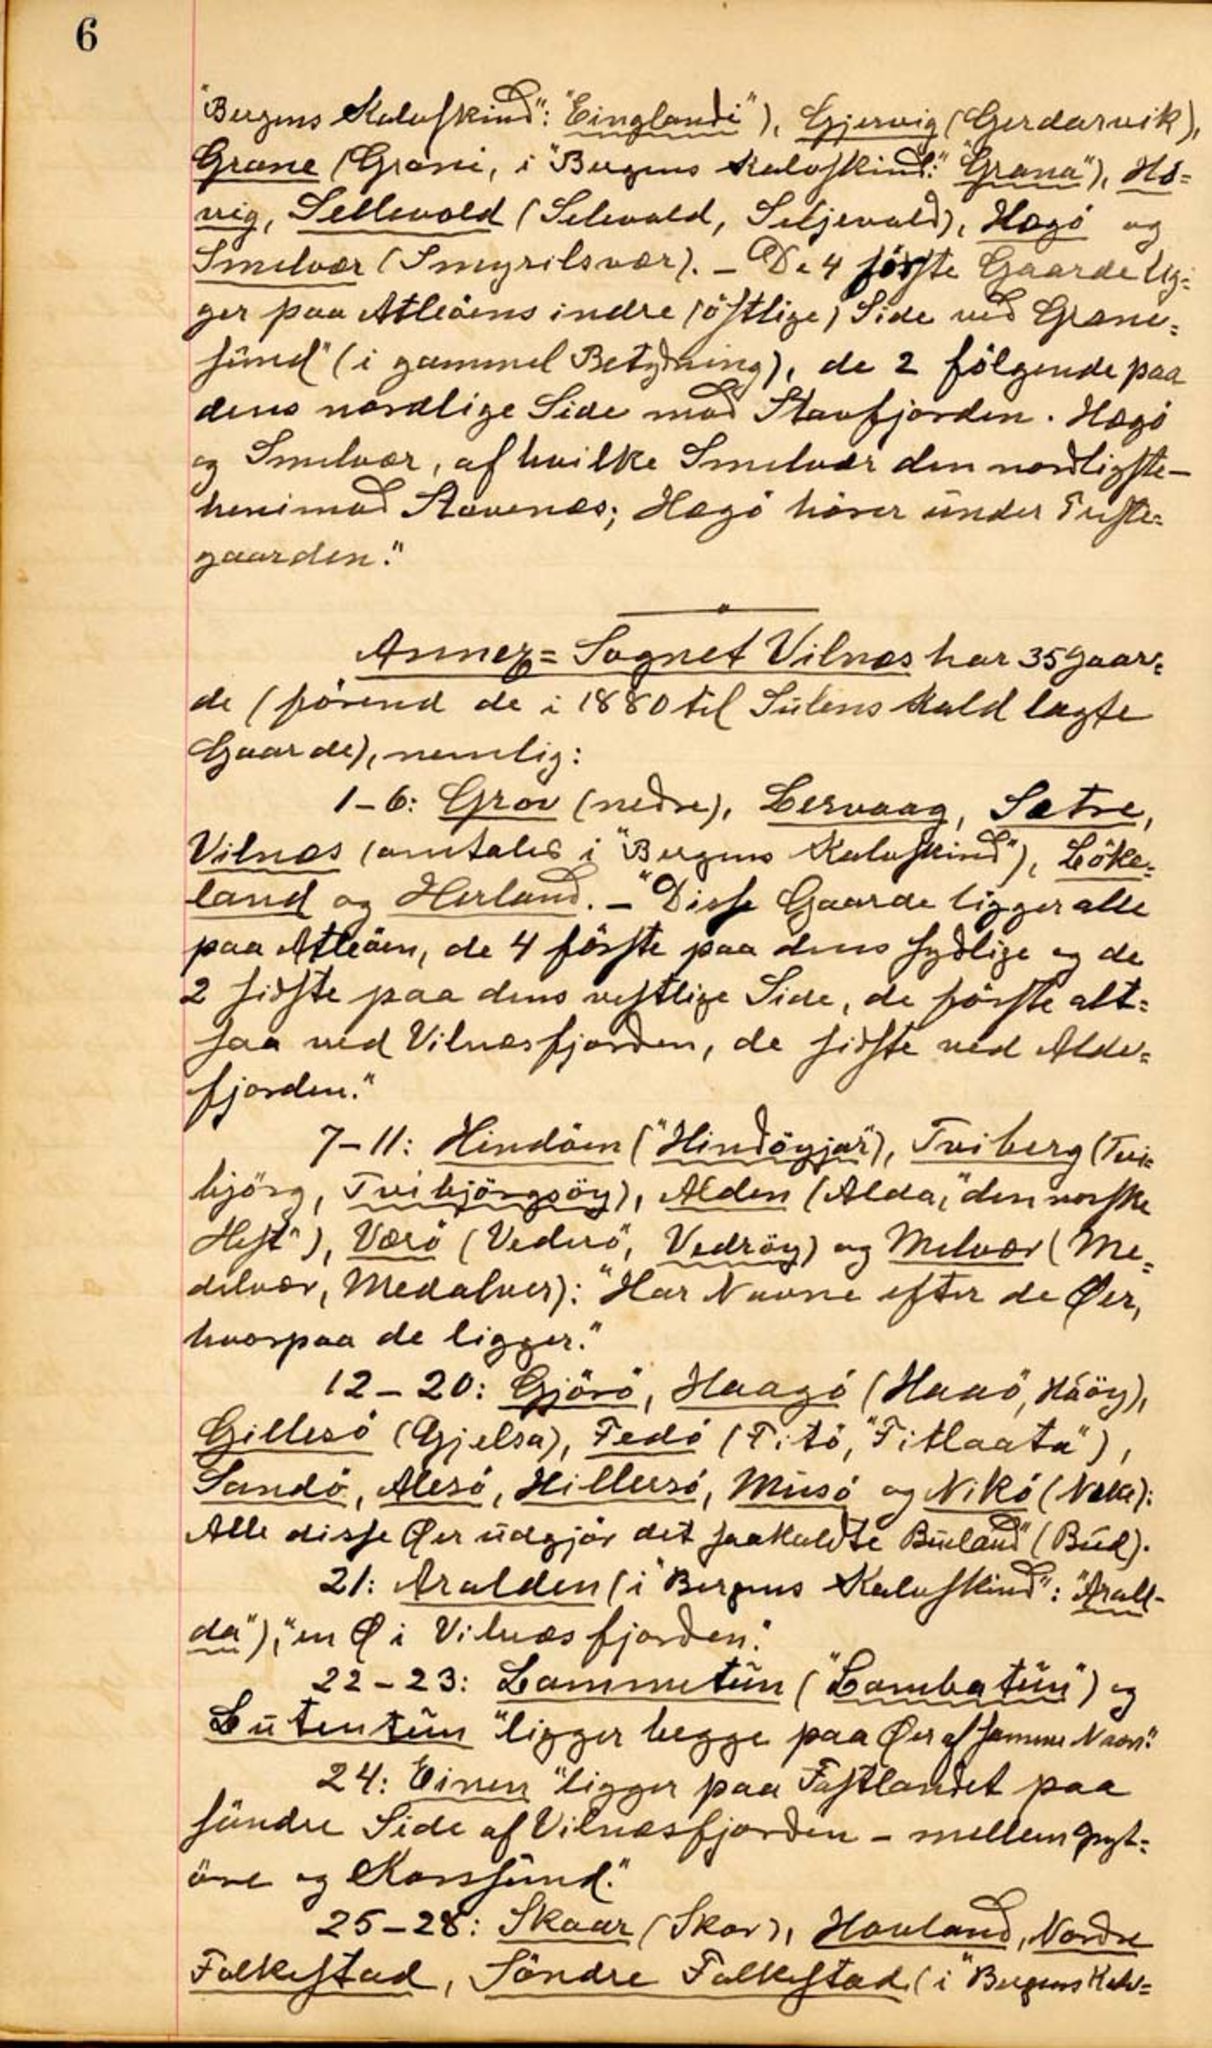 6
"Bergens Kalvskind": "Einglandi"), Gjervig (Gerdarvik),
Grane (Grani, i "Bergens Kalvskind": "Grana"), Hå=
vig, Sellevold (Selevald, Seljevald), Hægö og
Smelvær (Smyrilsvær). – "De 4 förste Gaarde lig=
ger paa Atleöens indre (östlige) Side ved Grane=
sund" (i gammel Betydning), de 2 fölgende paa
dens nordlige Side mod Stavfjorden. Hægö
og Smelvær, af hvilke Smelvær den nordligste –
henimod Stavenes; Hægö hörer under Preste=
gaarden."
Annex=Sognet Vilnæs har 35 Gaar=
de (förend de i 1880 til Sulens Kald lagte
Gaarde), nemlig:
1–6: Grov (nedre), Lervaag, Sætre,
Vilnæs (omtales i "Bergens Kalvskind"), Löke=
land og Herland. – "Disse Gaarde ligger alle
paa Atleöen, de 4 förste paa dens sydlige og de
2 sidste paa dens vestlige Side, de förste alt=
saa ved Vilnæsfjorden, de sidste ved Alde=
fjorden."
7–11: Hindöen ("Hindöyjar"), Tviberg (Tvi=
björg, Tvibjörgsöy), Alden (Alda, "den norske
Hest"), Værö (Vederö, Vedröy) og Melvær (Me=
delvær, Medalver): "Har Navne efter de Øer,
hvorpaa de ligger."
12–20: Gjörö, Haagö (Haaö, Håöy),
Gillesö (Gjelsa), Fedö (Fitö, "Fitlaata"),
Sandö, Alesö, Hillersö, Musö og Nikö (Neka):
Alle disse Øer udgjör det saakaldte "Bueland" (Bud).
21: Aralden (i "Bergens Kalvskind": "Arall-
da"), "en Ø i Vilnæsfjorden."
22–23: Lammetun ("Lambatún") og
Lutentun "ligger begge paa Øer af samme Navn."
24: Einen "ligger paa Fastlandet paa
söndre Side af Vilnæsfjorden – mellem Gryt=
öre og Korssund."
25–28: Skaar (Skor), Hovland, Nordre
Folkestad, Söndre Folkestad (i "Bergens Kalv=